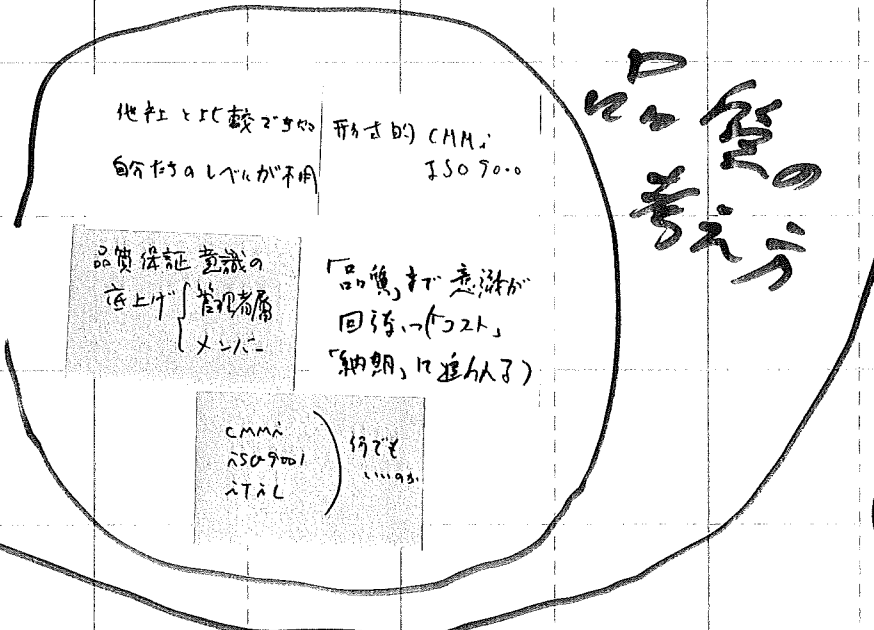 品質の
考え方
他社と比較できる
自分たちのレベルが不明
形式的 CMMi
ISO9000
品質保証意識の
底上げ{管理者層
メンバー
「品質」まで意識が
回らない(「コスト」
「納期」に追われる)
CMMi
iSO9001
iTiL
何でも
いいのか